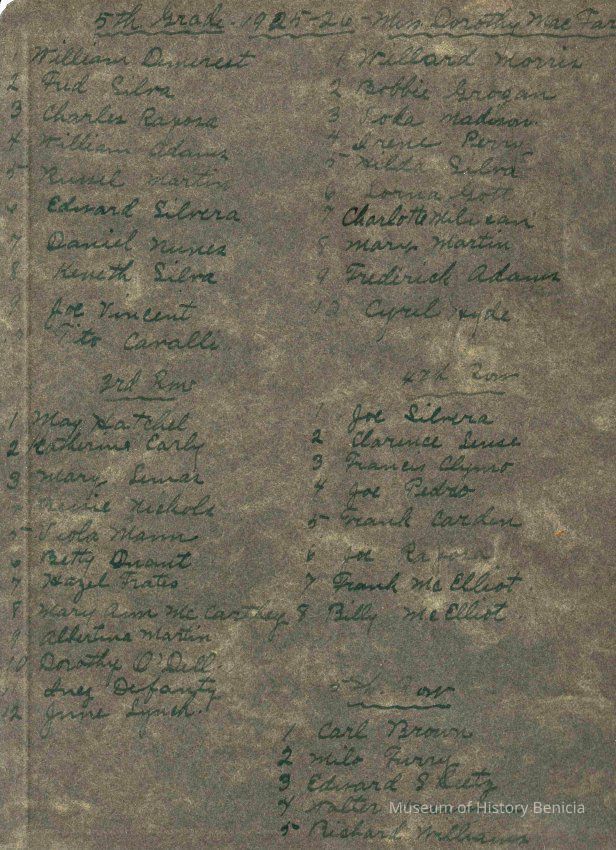 5th Grade. 1925-26 - Miss Dorothy Mae
William Demerest
2 Fred Silva
3 Charles Raposa
4 William Adams
5 Russel Martin
6 Edward Silvera
7 Daniel Nunes
8 Keneth Silva
9 Joe Vincent
Tito Cavalli
1 Willard Morris
2 Bobbie Grogan
3 Madison
4 Irene Perry
5 Hilda Silva
6 Lorna Gott
7 Charlotte
8 Mary Martin
9 Frederick Adams
Cyril Hyde
3rd Row
1 May Hatchel
2 Katherine Early
3 Mary
Nichols
5 Viola Mann
6 Betty
7 Hazel Frates
8 Mary Ann McCarthey
9 Albertina Martin
10 Dorothy O'Dell
Inez
12 June Lynch.
4th Row
1 Joe Silvera
2 Clarence
3 Francis Clymo
4 Joe Pedro
5 Frank Carden
6 Joe
7 Frank McElliot
8 Billy McElliot
5th Row
1 Carl Brown
2 Milo
3 Edward
4 Walter
5 Richard Williams
Museum of History Benicia